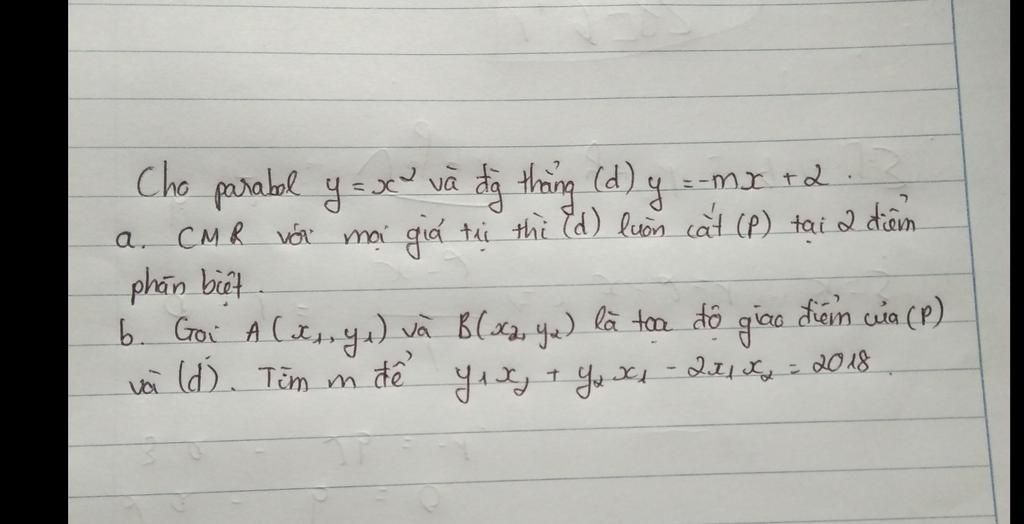 Cho parabol y = x² và đg thẳng (d) y = -mx + 2.
a. CMR với mọi giá trị thì (d) luôn cắt (P) tại 2 điểm
phân biệt.
b. Gọi A(x₁, y₁) và B(x₂, y₂) là tọa độ giao điểm của (P)
và (d). Tìm m để y₁x₂ + y₂x₁ - 2x₁x₂ = 2018.